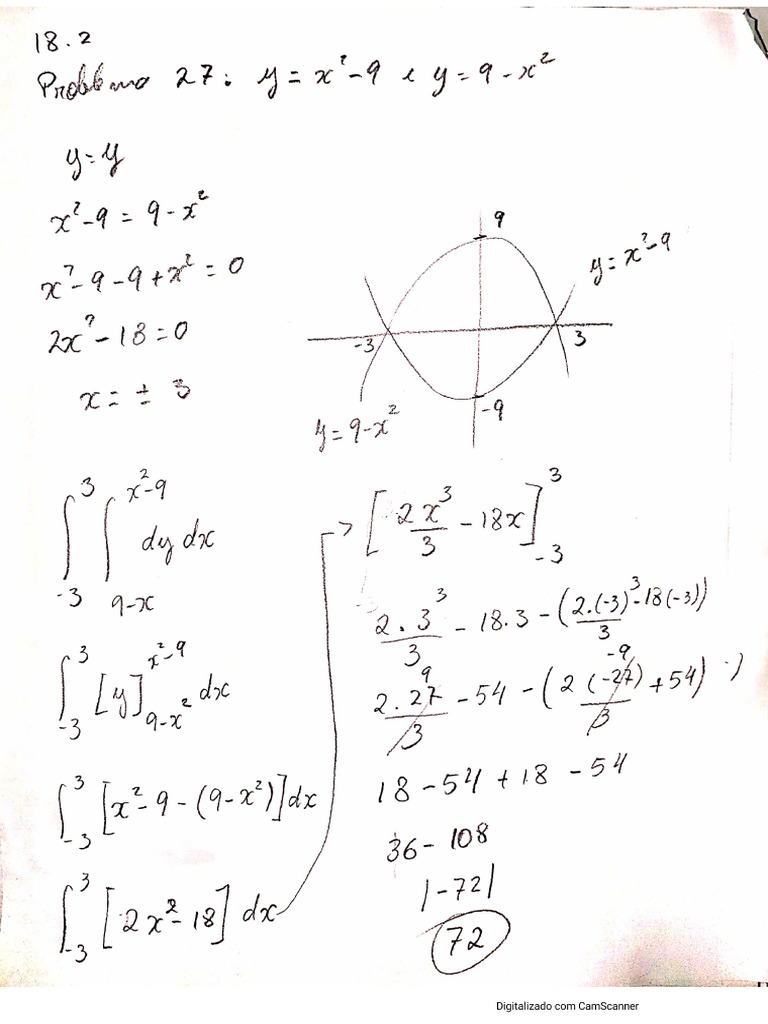 18.2
Problema 27: y = x² - 9 e y = 9 - x²
y = y
x² - 9 = 9 - x²
x² - 9 - 9 + x² = 0
2x² - 18 = 0
x = ± 3
9
y = x² - 9
-3 3
-9
y = 9 - x²
∫_{-3}^{3} ∫_{9-x}^{x²-9} dy dx
∫_{-3}^{3} [y]_{9-x²}^{x²-9} dx
∫_{-3}^{3} [x² - 9 - (9 - x²)] dx
∫_{-3}^{3} [2x² - 18] dx
→ [2x³/3 - 18x]_{-3}^{3}
2 · 3³/3 - 18 · 3 - (2 · (-3)³/3 - 18(-3))
9 -9
2 · 27/3 - 54 - (2 (-27)/3 + 54)
18 - 54 + 18 - 54
36 - 108
|-72|
72
Digitalizado com CamScanner